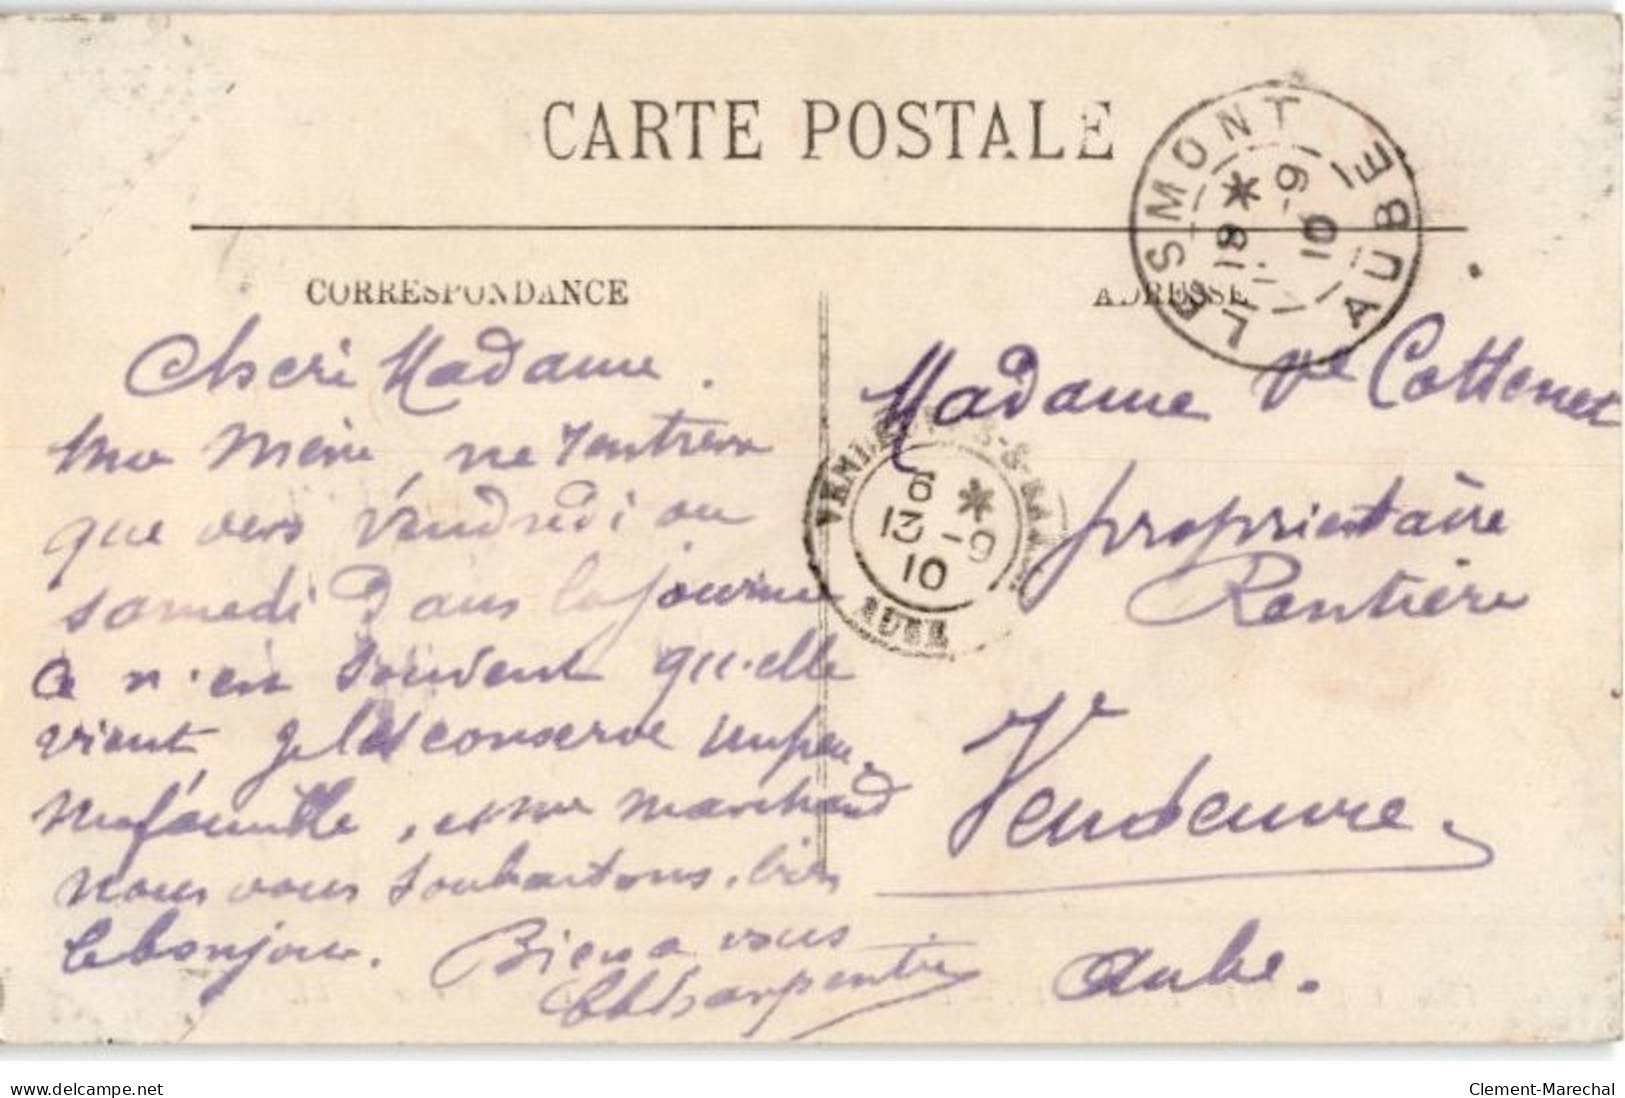 CARTE POSTALE
LESMONT AUBE
18 * -9 10
CORRESPONDANCE
Cheri Madame.
Ma Mère, ne rentrera
que vers Vendredi ou
samedi dans la journée
Ce n'est souvent qu'elle
vient je la conserve un peu,
Ma famille, et me marchand
nous vous souhaitons, bien
le bonjour. Bien a vous
Charpentier
ADRESSE
Madame Vve Cottenet
propriétaire
Rentière
Vendeuvre.
Aube.
6 *
13 -9
10
AUBE
www.delcampe.net
Clement-Marechal